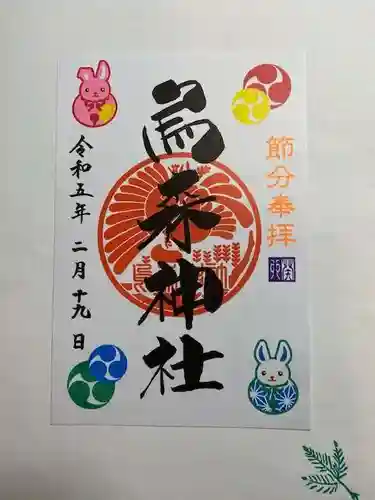 節分奉拝
癸卯
烏森神社
令和五年 二月十九日